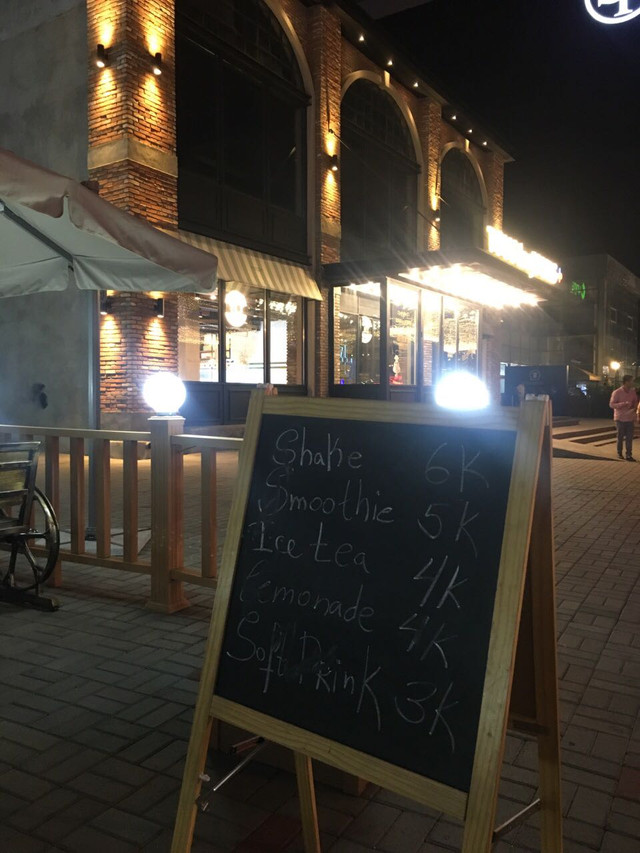 Shake 6K
Smoothie 5K
Ice tea 4K
Lemonade 4K
Soft Drink 3K